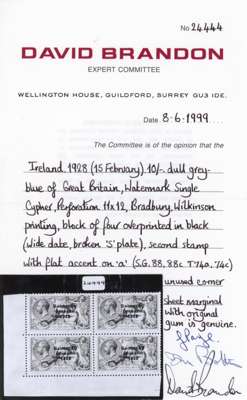 No 24444
DAVID BRANDON
EXPERT COMMITTEE
WELLINGTON HOUSE, GUILDFORD, SURREY GU3 IDE.
Date 8-6-1999
The Committee is of the opinion that the
Ireland 1928 (15 February) 10/- dull grey-
blue of Great Britain, Watermark Single
Cypher, Perforation 11x12, Bradbury, Wilkinson
printing, block of four overprinted in black
(wide date, broken 'S' plate), second stamp
with flat accent on 'a' (S.G. 88, 88c T74a, 74c)
unused corner
sheet marginal
with original
gum is genuine.
24444
David Brandon